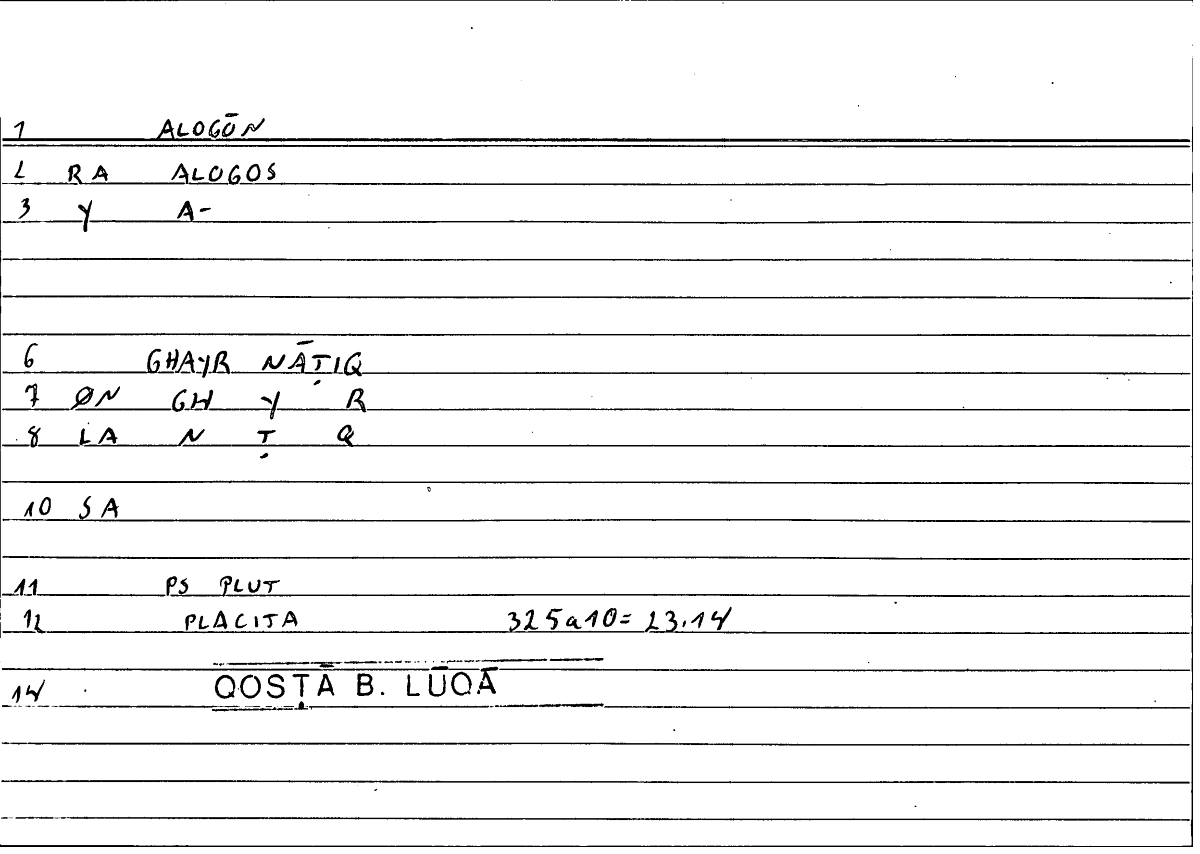 1 ALOGŌN
2 RA ALOGOS
3 Y A-
6 GHAYR NĀṬIQ
7 ØN GH Y R
8 LA N Ṭ Q
10 SA
11 PS PLUT
12 PLACITA 325a10= 23.14
14 QOSṬĀ B. LŪQĀ